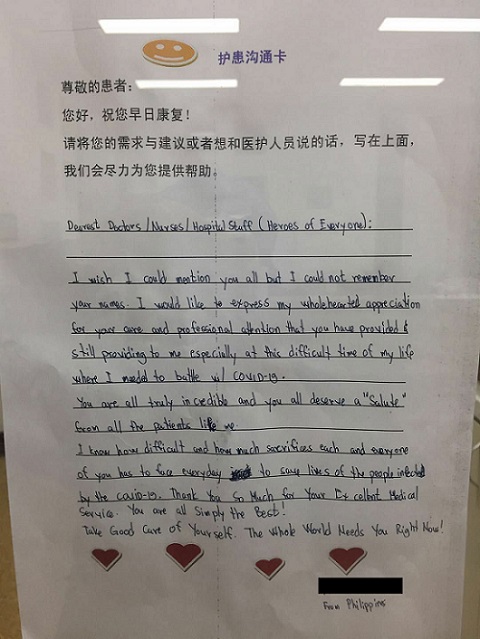 护患沟通卡
尊敬的患者：
您好，祝您早日康复！
请将您的需求与建议或者想和医护人员说的话，写在上面，
我们会尽力为您提供帮助。
Dearest Doctors/Nurses/Hospital Stuff (Heroes of Everyone):
I wish I could mention you all but I could not remember
your names. I would like to express my wholehearted appreciation
for your care and professional attention that you have provided &
still providing to me especially at this difficult time of my life
where I needed to battle w/ COVID-19.
You are all truly incredible and you all deserve a "Salute"
from all the patients like me.
I know how difficult and how much sacrifices each and everyone
of you has to face everyday to save lives of the people infected
by the covid-19. Thank You So Much for Your Excellent Medical
Service. You are all Simply the Best!
Take Good Care of Yourself. The Whole World Needs You Right Now!
From Philippines